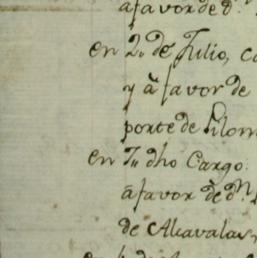 à favor de d.n
en 2 de Julio, C
y à favor de
porte de Plom
en 7 dho Cargo
à favor de d.n
de Alcavalas,